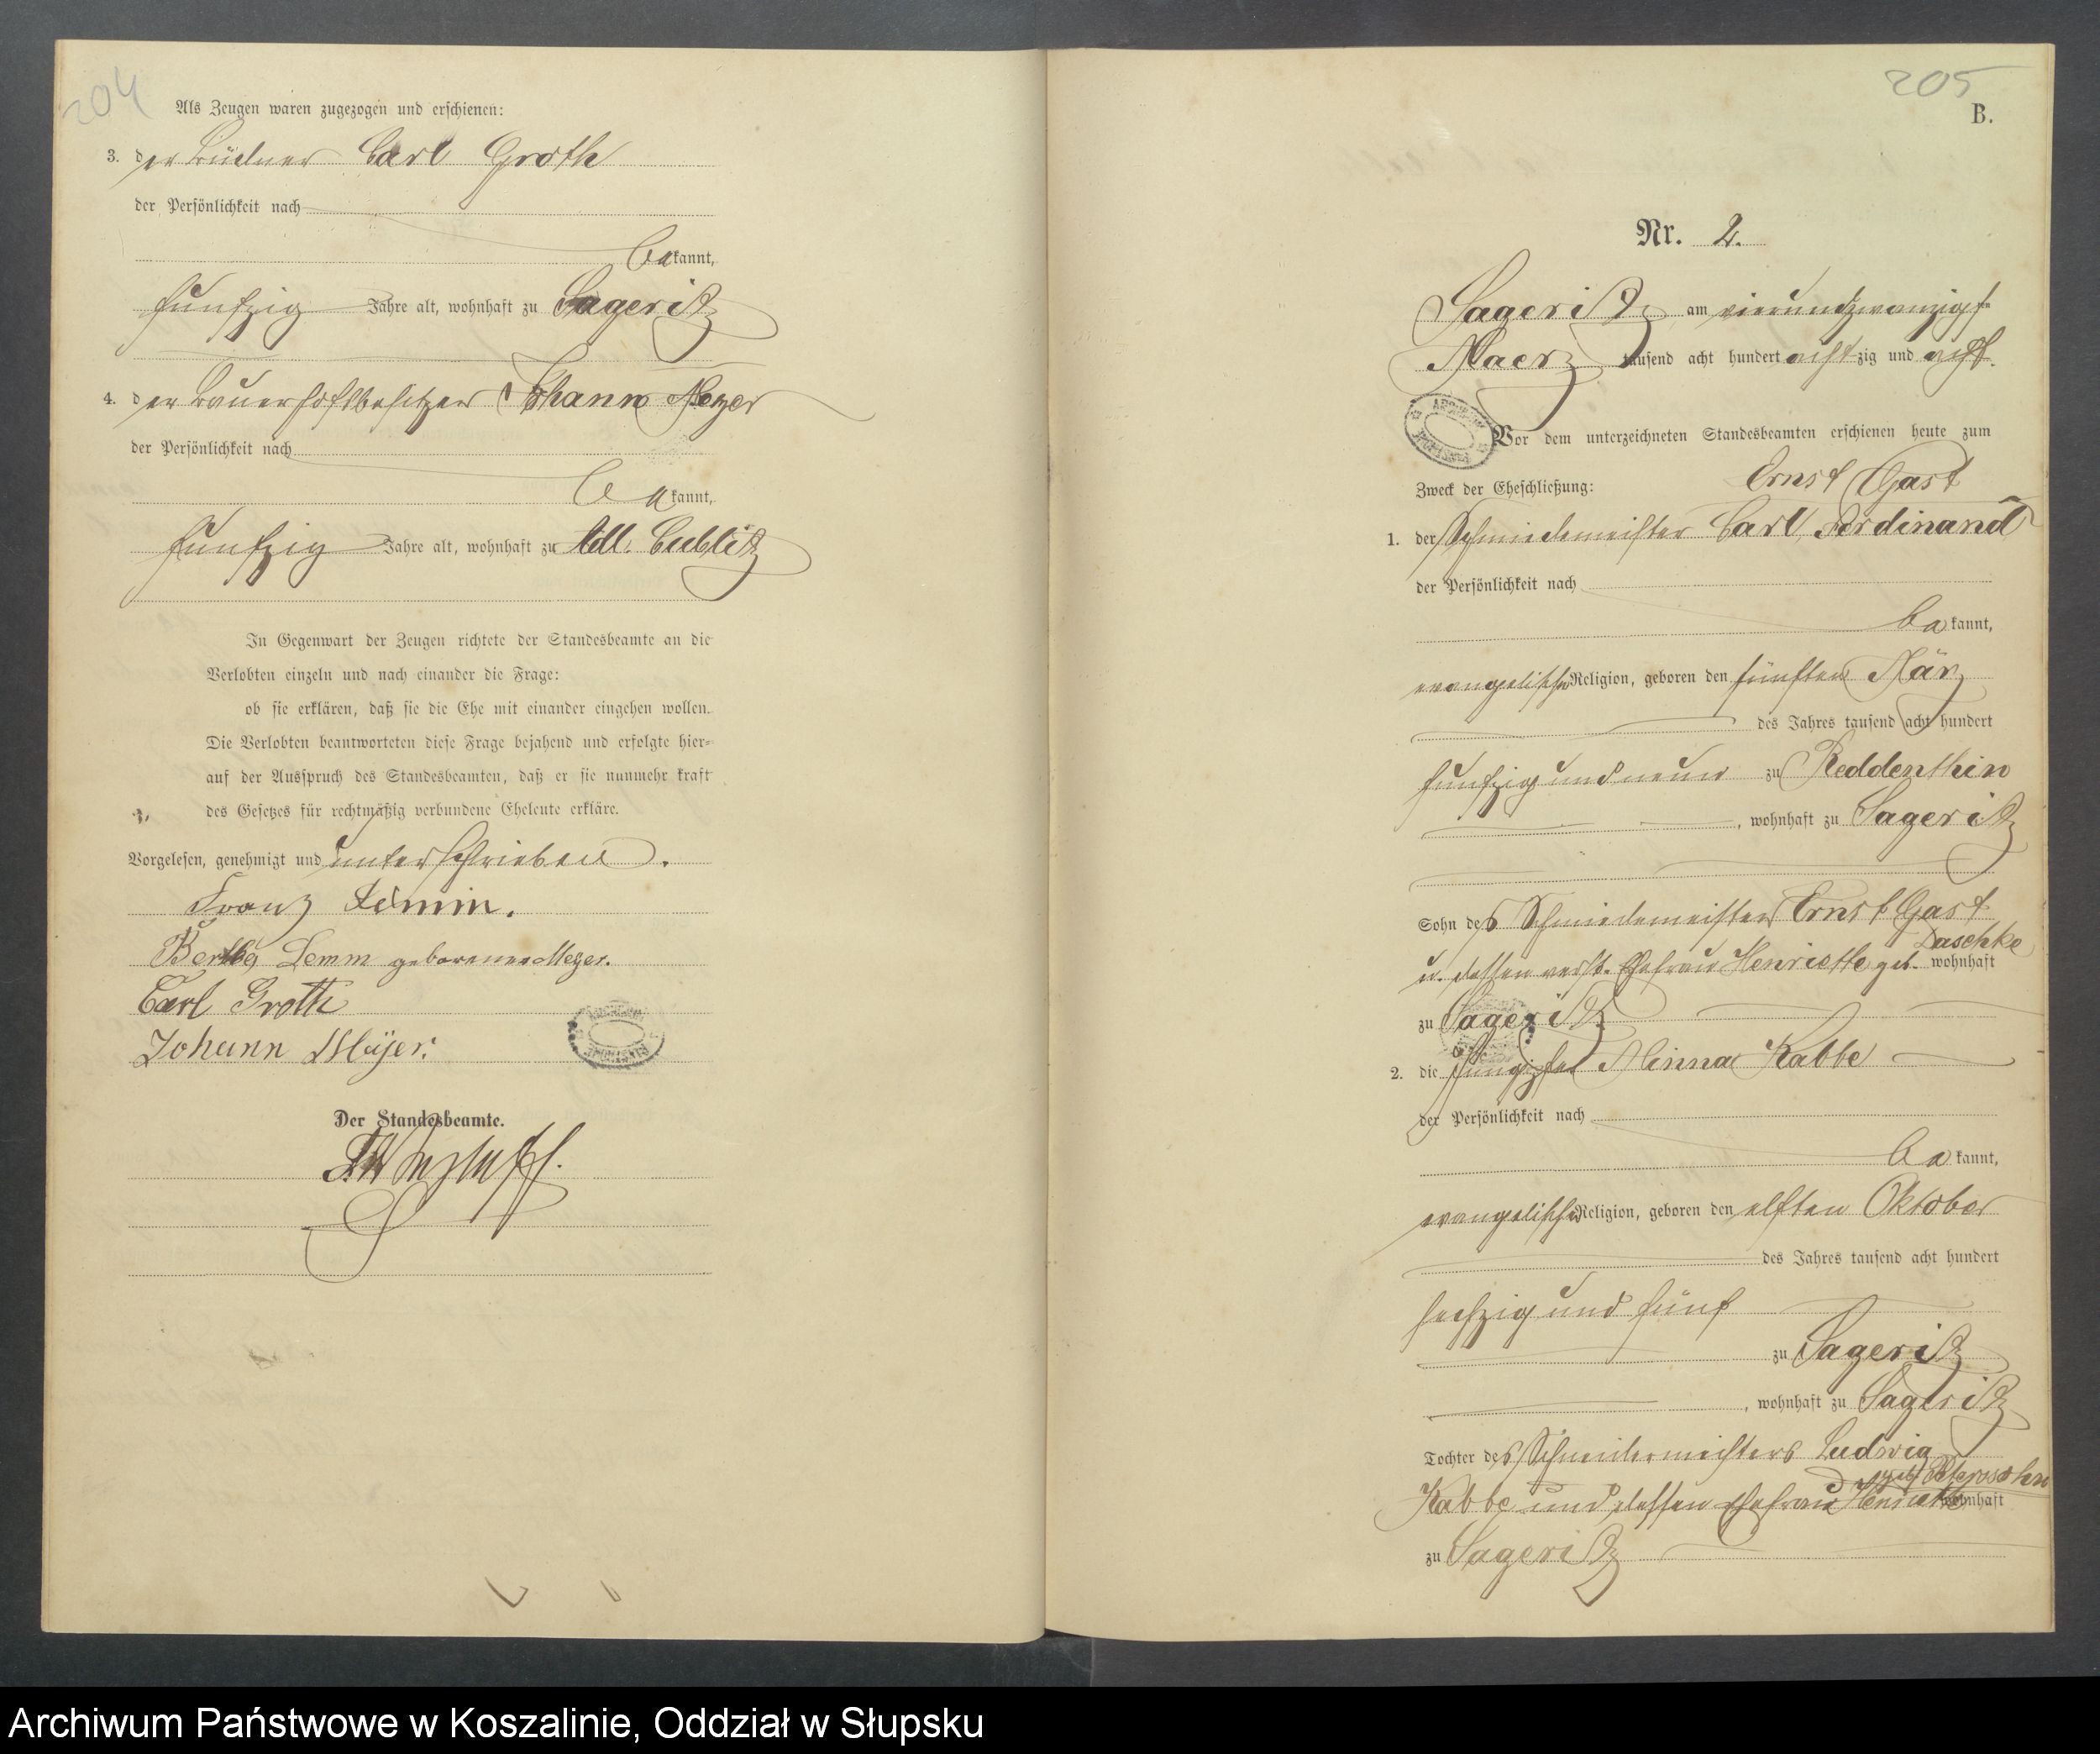 204
Als Zeugen waren zugezogen und erschienen:
3. der Büdner Carl Groth
der Persönlichkeit nach
bekannt,
funfzig Jahre alt, wohnhaft zu Sageritz
4. der Bauerhofsbesitzer Johann Meyer
der Persönlichkeit nach
bekannt,
funfzig Jahre alt, wohnhaft zu Adl. Bublitz
In Gegenwart der Zeugen richtete der Standesbeamte an die
Verlobten einzeln und nach einander die Frage:
ob sie erklären, daß sie die Ehe mit einander eingehen wollen.
Die Verlobten beantworteten diese Frage bejahend und erfolgte hier-
auf der Ausspruch des Standesbeamten, daß er sie nunmehr kraft
des Gesetzes für rechtmäßig verbundene Eheleute erkläre.
Vorgelesen, genehmigt und unterschrieben.
Franz
Bertha Lemm geborene Meyer.
Carl Groth
Johann Meyer.
Der Standesbeamte.
205
B.
Nr. 2.
Sageritz am vierundzwanzigsten
Maerz tausend acht hundert achtzig und acht.
Vor dem unterzeichneten Standesbeamten erschienen heute zum
Zweck der Eheschließung: Ernst Gast
1. der Schmiedemeister Carl, Ferdinand
der Persönlichkeit nach
bekannt,
evangelischer Religion, geboren den fünften März
des Jahres tausend acht hundert
funfzig und neun zu Reddenthin
, wohnhaft zu Sageritz
Sohn des Schmiedemeisters Ernst Gast
Daschke
u. dessen verst. Ehefrau Henriette geb. wohnhaft
zu Sageritz
2. die Jungfer Minna Kabbe
der Persönlichkeit nach
bekannt,
evangelischer Religion, geboren den elften Oktober
des Jahres tausend acht hundert
sechzig und fünf
zu Sageritz
, wohnhaft zu Sageritz
Tochter des Schneidermeisters Ludwig
geb.
Kabbe und dessen Ehefrau Henriette wohnhaft
zu Sageritz
Archiwum Państwowe w Koszalinie, Oddział w Słupsku